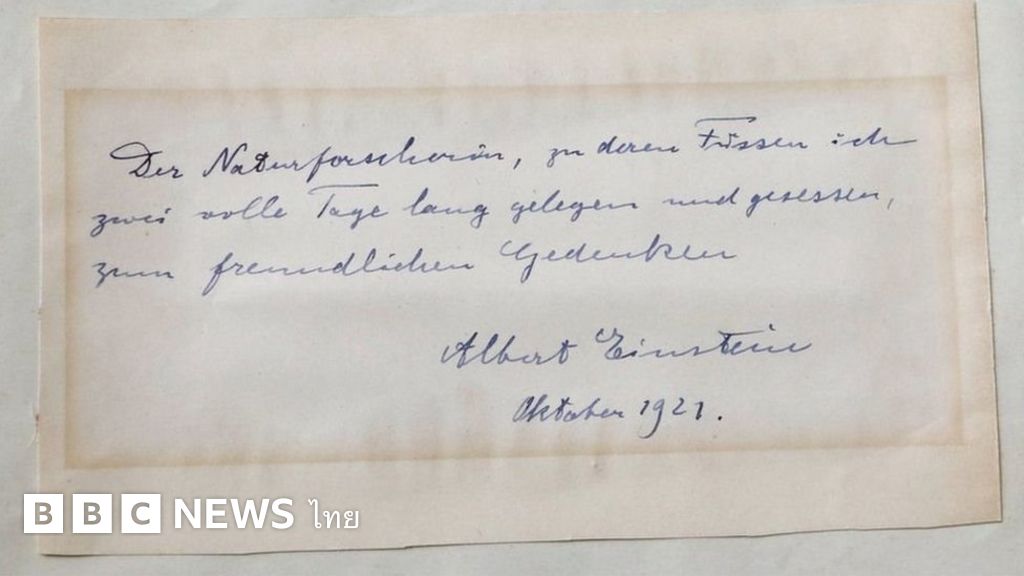 Der Naturforscherin, zu deren Füssen ich
zwei volle Tage lang gelegen und gesessen,
zum freundlichen Gedenken
Albert Einstein
Oktober 1921.
BBC NEWS ไทย